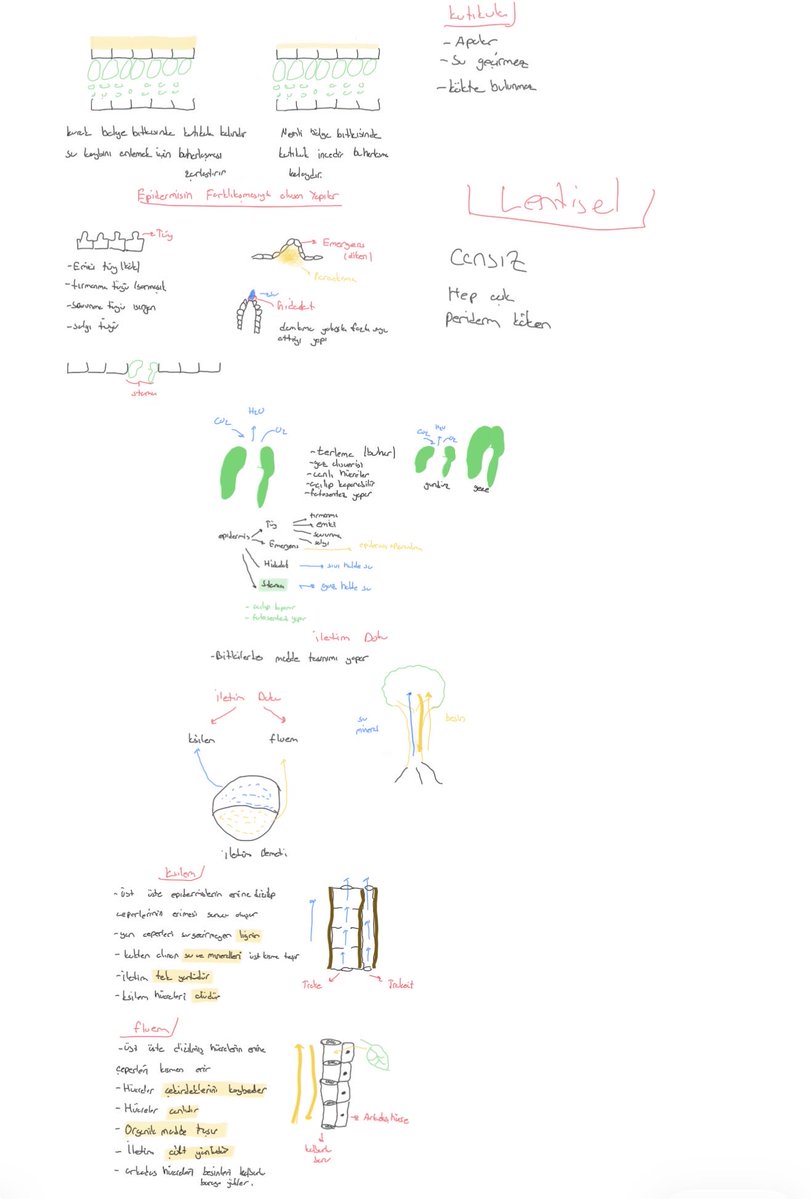 kutikula
- Apolar
- Su geçirmez
- Kökte bulunmaz
kurak bölge bitkisinde kutikula kalındır
su kaybını önlemek için buharlaşması
zorlaştırır
Nemli bölge bitkisinde
kutikula incedir buharlaşma
kolaydır.
Epidermisin Farklılaşmasıyla oluşan Yapılar
Lentisel
cansız
Hep açık
Periderm köken
Tüy
- Emici tüy (kök)
- tırmanma tüyü (sarmaşık)
- savunma tüyü ısırgan
- salgı tüyü
Emergens
(diken)
Parankima
su
Hidatot
damlama yoluyla fazla suyu
attığı yapı
stoma
CO2
H2O
O2
- terleme (buhar)
- gaz alışverişi
- canlı hücreler
- açılıp kapanabilir
- fotosentez yapar
CO2
H2O
O2
gündüz
gece
epidermis
Tüy
tırmanma
emici
savunma
salgı
Emergens
Hidatot
sıvı halde su
stoma
gaz halde su
- açılıp kapanır
- fotosentez yapar
iletim Doku
- Bitkilerde madde taşınımı yapar
iletim Doku
ksilem
floem
su
mineral
besin
iletim Demeti
ksilem
- üst üste epidermislerin enine dizilip
çeperlerinin erimesi sonucu oluşur
- yan çeperleri su geçirmeyen lignin
- kökten alınan su ve mineralleri üst kısma taşır
- iletim tek yönlüdür
- ksilem hücreleri ölüdür
Trake
Trakeit
floem
- üst üste dizilmiş hücrelerin enine
çeperleri kısmen erir
- Hücreler çekirdeklerini kaybeder
- Hücreler canlıdır
- Organik madde taşır
- İletim çift yönlüdür
- arkadaş hücreleri besinleri kalburlu
boruya yükler.
Arkadaş hücre
kalburlu
boru